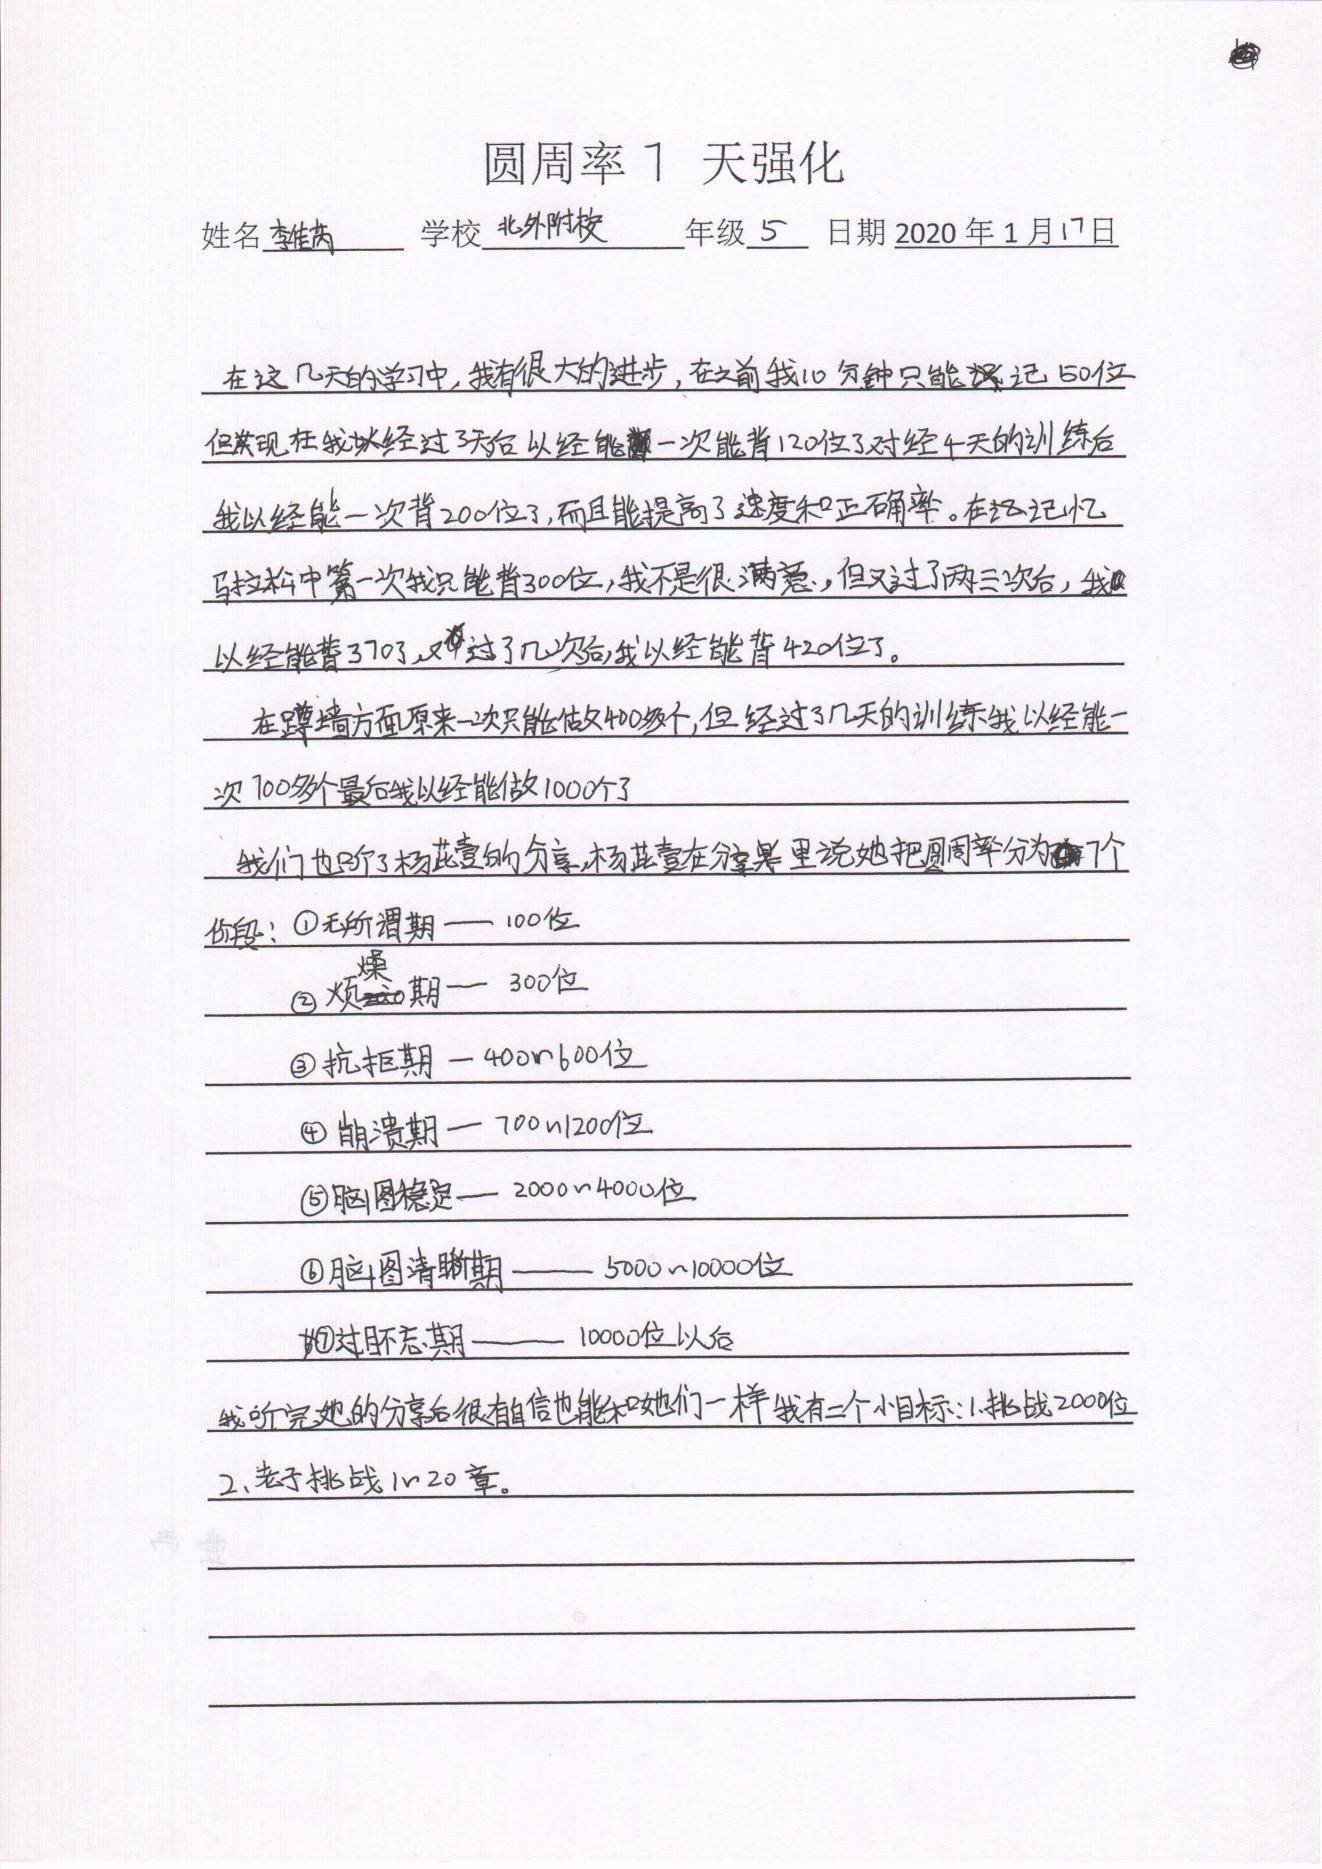 圆周率7 天强化
姓名李佳芮 学校北外附校 年级5 日期2020年1月17日
在这几天的学习中,我有很大的进步,在之前我10分钟只能记50位
但发现在我经过了3天后以经能一次能背120位了对经4天的训练后
我以经能一次背200位了,而且能提高了速度和正确率。在记忆
马拉松中第一次我只能背300位,我不是很满意,但又过了两三次后,我
以经能背370了,又过了几次后,我以经能背420位了。
在蹲墙方面原来一次只能做400多个,但经过了几天的训练我以经能一
次700多个最后我以经能做1000个了
我们也听了杨芷壹的分享,杨芷壹在分享里说她把圆周率分为7个
价段:①无所谓期——100位
②烦燥期—300位
③抗拒期—400~600位
④崩溃期—700~1200位
⑤脑图稳定—2000~4000位
⑥脑图清晰期——5000~10000位
⑦过目不忘期——10000位以后
我听完她的分享后很有自信也能和她们一样我有二个小目标:1.挑战2000位
2、老子挑战1~20章。